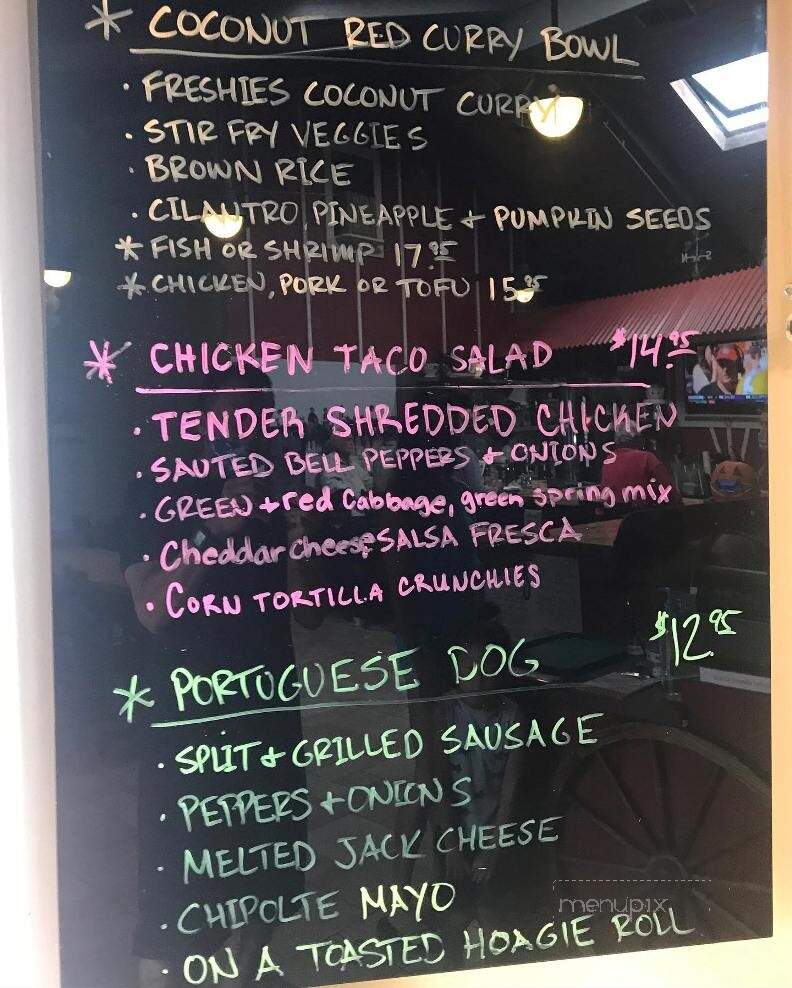 * COCONUT RED CURRY BOWL
· FRESHIES COCONUT CURRY
· STIR FRY VEGGIES
· BROWN RICE
· CILANTRO PINEAPPLE + PUMPKIN SEEDS
* FISH OR SHRIMP 17.95
* CHICKEN, PORK OR TOFU 15.95
* CHICKEN TACO SALAD $14.95
· TENDER SHREDDED CHICKEN
· SAUTED BELL PEPPERS + ONIONS
· GREEN + red Cabbage, green spring mix
· Cheddar cheese SALSA FRESCA
· CORN TORTILLA CRUNCHIES
* PORTUGUESE DOG $12.95
· SPLIT + GRILLED SAUSAGE
· PEPPERS + ONIONS
· MELTED JACK CHEESE
· CHIPOLTE MAYO
· ON A TOASTED HOAGIE ROLL
menupix